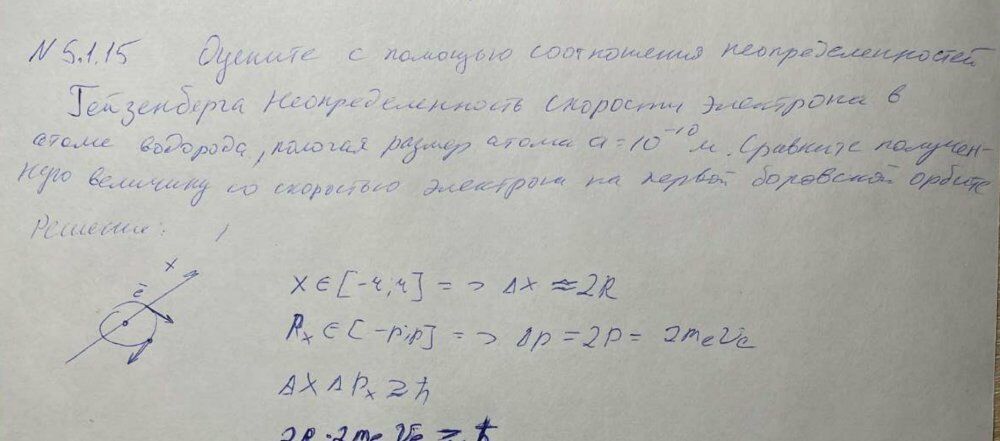 N 5.1.15 Оцените с помощью соотношения неопределенностей
Гейзенберга неопределенность скорости электрона в
атоме водорода, полагая размер атома a = 10⁻¹⁰ м. Сравните получен-
ную величину со скоростью электрона на первой боровской орбите
Решение:
x
ē
x ∈ [-r; r] => Δx ≈ 2R
Pₓ ∈ [-p; p] => Δp = 2p = 2mₑVₑ
Δx Δpₓ ≥ ħ
2R · 2mₑ Vₑ ≥ ħ